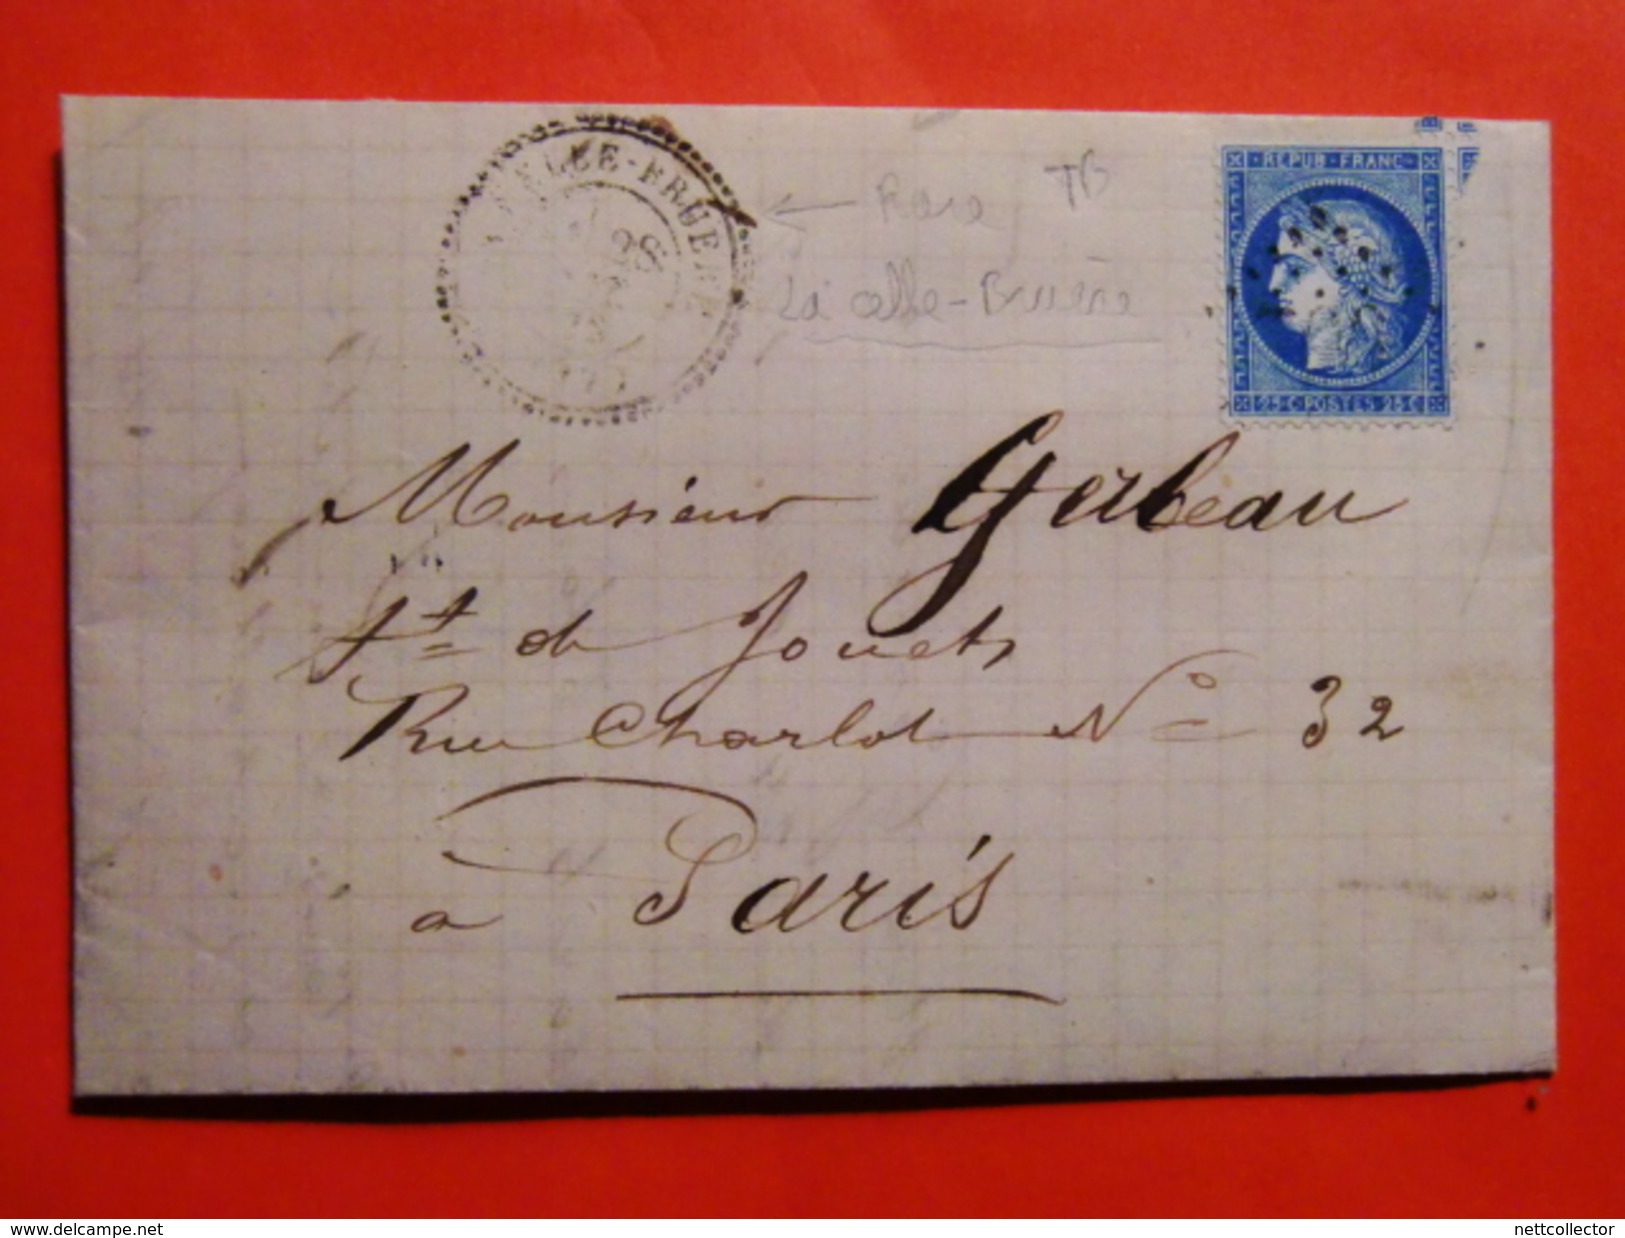 LA CELLE-BRUERE
28
Rare TB
La Celle-Bruère
REPUB · FRANC
25 · C POSTES 25 · C
Monsieur Gerbeau
ft de Jouets
Rue Charlot No 32
a Paris
www.delcampe.net
nettcollector